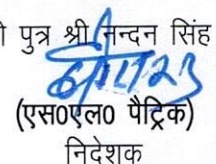 पुत्र श्री नन्दन सिंह
(एस०एल० पैट्रिक)
निदेशक